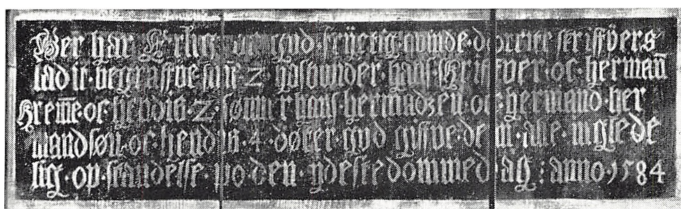 Her har Erlig oc gud frijctig quinde dorite skriffvers
ladit begraffve sin 2 hosbunder hans skriffver oc hermañ
kreme oc hendis 2 sønner hans hermadzen oc hermand her
mandsøn oc hendis 4 døter gud giffve dem alle en glede
lig opstandelse po den ydeste dommedag : anno 1584